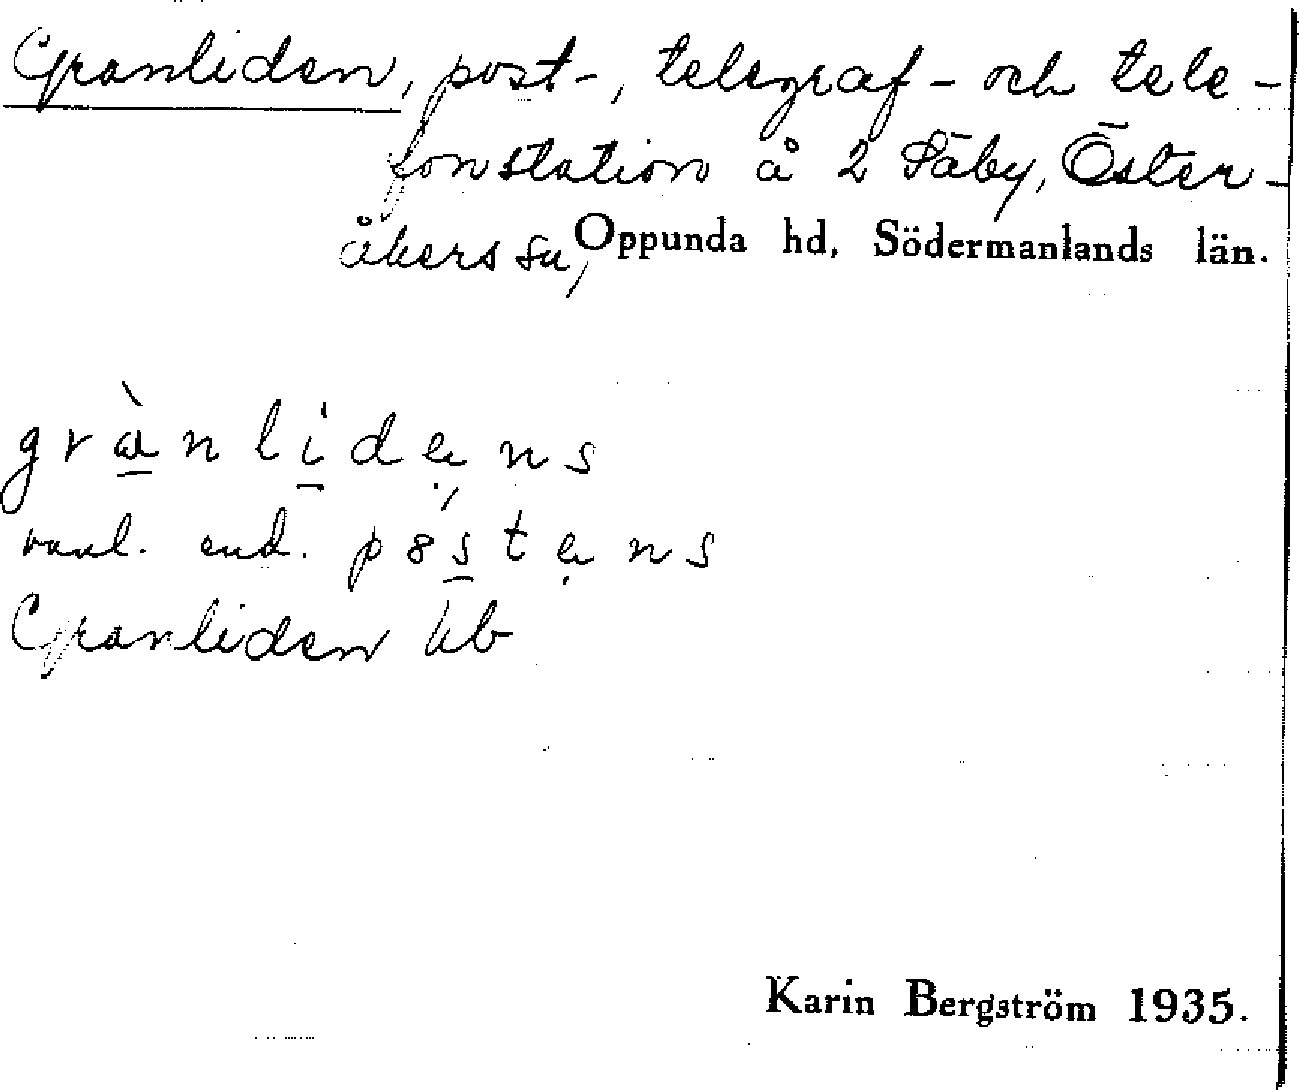 Granliden, post-, telegraf- och tele-
fonstation å 2 Täby, Öster-
åkers sn, Oppunda hd, Södermanlands län.
grànlidens
vanl. end. póstens
Granliden kb
Karin Bergström 1935.